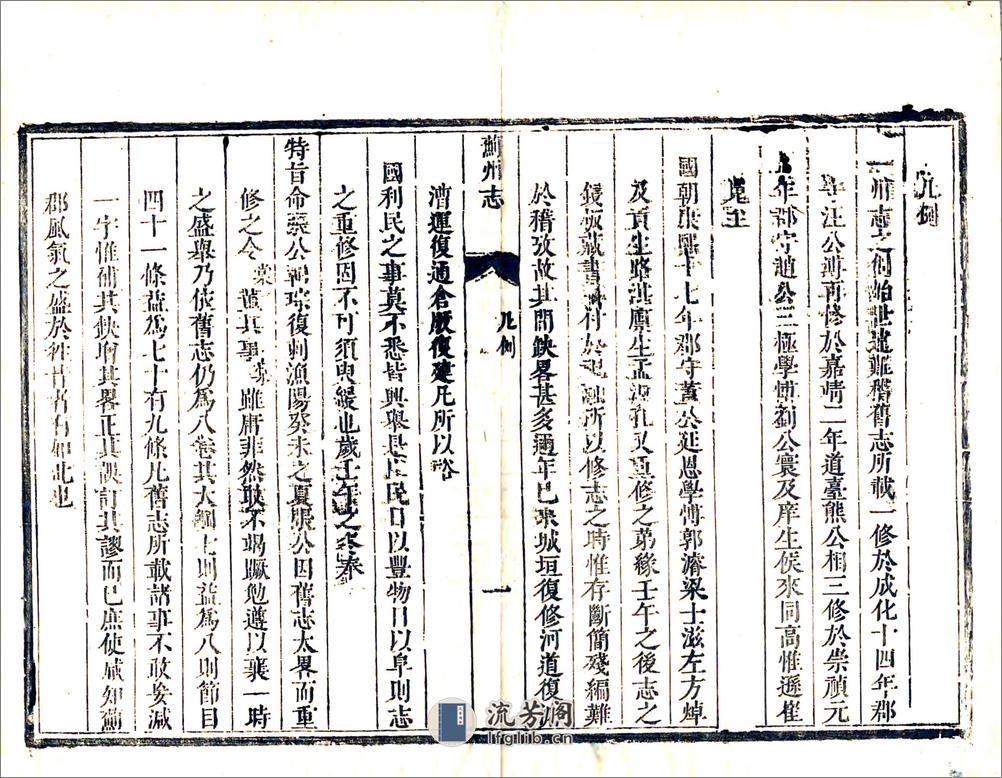 凡例
一州志之創始世遠難稽舊志所載一修於成化十四年郡
學汪公溥再修於嘉靖二年道臺熊公相三修於崇禎元
年郡守趙公三極學博劉公寰及庠生侯來同高惟遜崔
崑玉
國朝康熙十七年郡守董公延恩學博郭濬梁士滋左方焯
及貢生路湛廩生孟淑孔又重修之第緣壬午之後志之
鋟板藏書付於祝融所以修志之時惟存斷簡殘編難
於稽攷故其間缺畧甚多邇年已來城垣復修河道復
薊州志
凡例
一
漕運復通倉廒復建凡所以裕
國利民之事莫不悉皆興舉是民日以豐物日以阜則志
之重修固不可須臾緩也歲壬午之冬奉
特旨命裴公 復刺漁陽癸未之夏張公因舊志太畧而重
修之令某董其事某雖庸非然敢不竭蹶勉遵以襄一時
之盛舉乃依舊志仍爲八卷其大綱七則益爲八則節目
四十一條益爲七十有九條凡舊志所載諸事不敢妄減
一字惟補其缺增其畧正其誤訂其謬而已庶使咸知薊
郡風氣之盛於往昔者有如此也
流芳閣
lfglib.cn